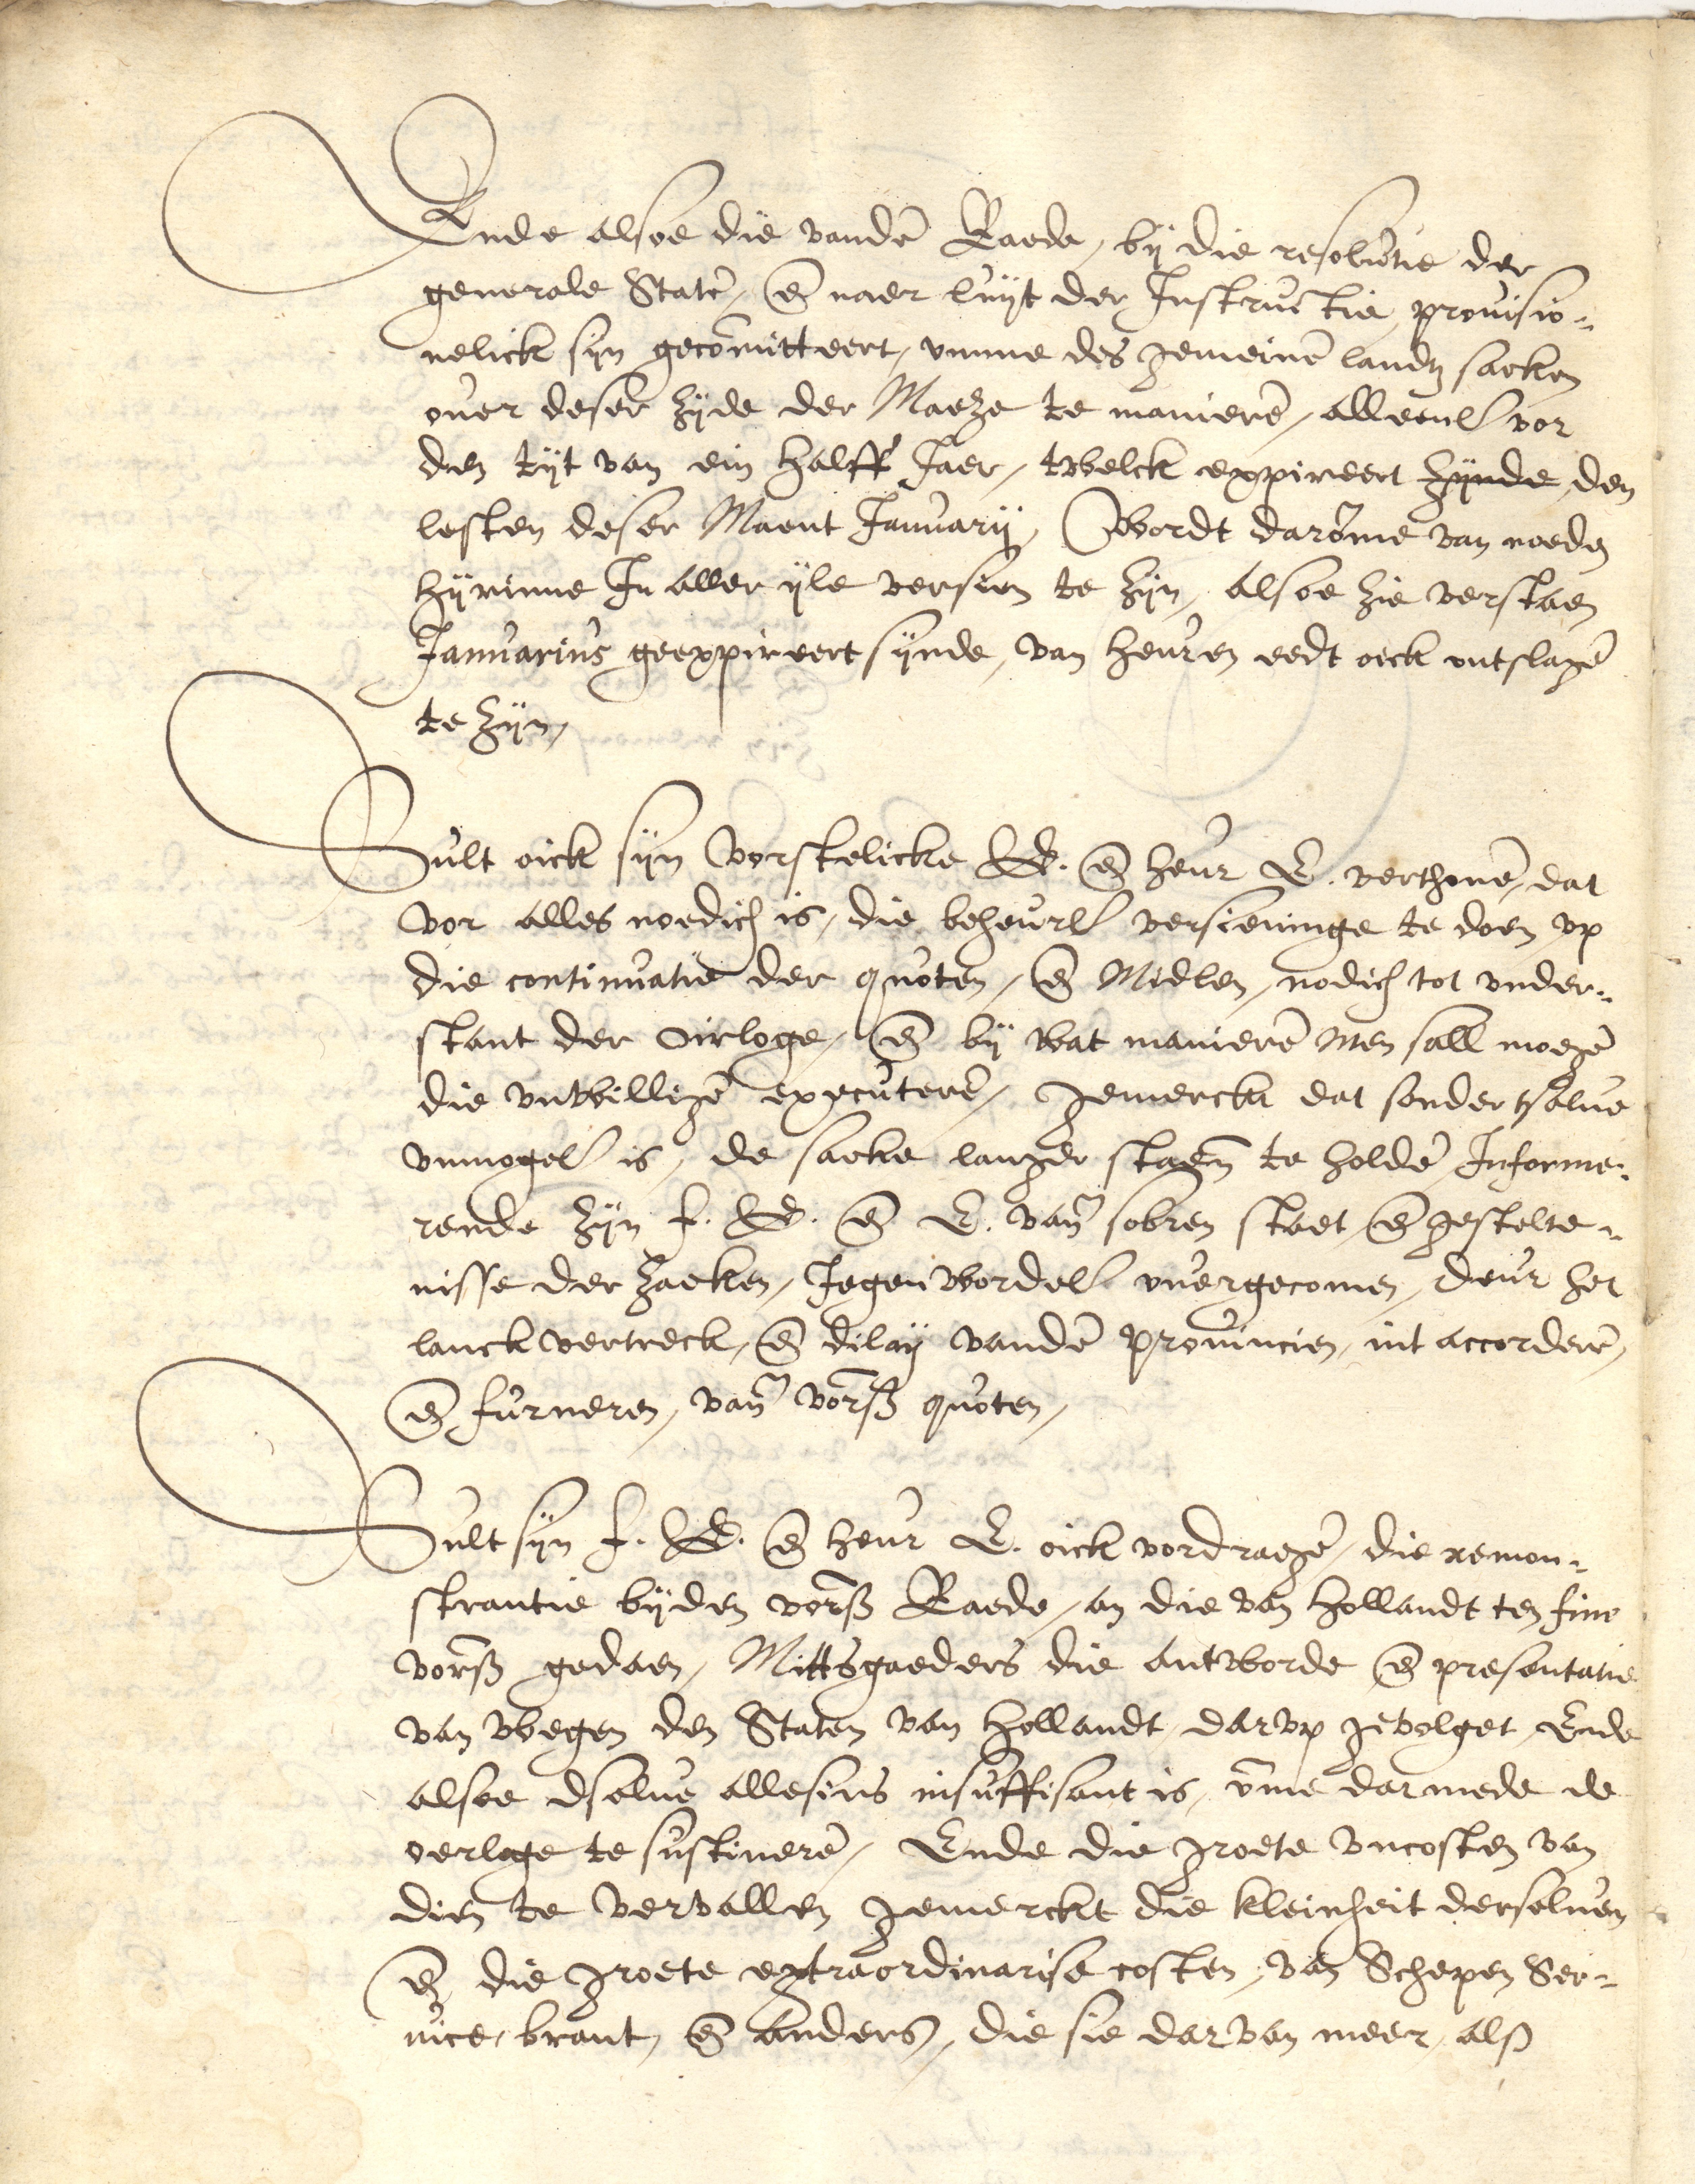 Ende alsoe die vanden Raede, bij die resolutie der
generale Staten, en̄ naer luijt der Instructie, provisio-
nelick sijn gecōmitteert, vmme des gemeinen landtz saeken
over deser zijde der Maeze te manieren, alleenl. vor
den tijt van ein halff Jaer, twelck expireert zijnde, den
lesten deser Maent Januarij, Wordt darōme van noeden
hijrinne In aller ijle versien te zijn, alsoe zie verstaen
Januarius geexpireert sijnde, van heuren eedt oick ontslagē
te zijn,
Sult oick sijn Vorstelicke G. en̄ heur E. verthonē, dat
vor alles noedich is, die beheurl. versieninge te doen, vp
die continuatie der quoten, en̄ Midlen, nodich tot vnder-
stant der Oirloge, en̄ bij wat manierē men sall moegē
die vnwilligē executerē, gemerckt dat sonder tselve
vnmogel. is, de saeke langer staen te holdē, Informe-
rende zijn f. G. en̄ E. van̄ sobren staet, en̄ gestelte-
nisse der zaeken, Jegenwordel. overgecomen, deur het
lanck vertreck, en̄ dilaij vandē provincien, int accorderē,
en̄ furneren, van̄ vorß quoten,
Sult sijn f. G. en̄ heur E. oick vordragē, die remon-
strantie bijden vorß Raede, an die van Hollandt ten fine
vorß gedaen, Mittsgaeders die antworde en̄ presentatie
van wegen den Staten van Hollandt, darvp gevolget, Ende
alsoe dselve allesins insuffisant is, v̄me darmede de
oerloge te sustinerē, Ende die groete vncosten van
dien te vervallen gemerckt die kleinheit derselven
en̄ die groete extraordinarise costen, van Schepen Ser-
vice, brant, en̄ anders, die sie darvan meer, alß